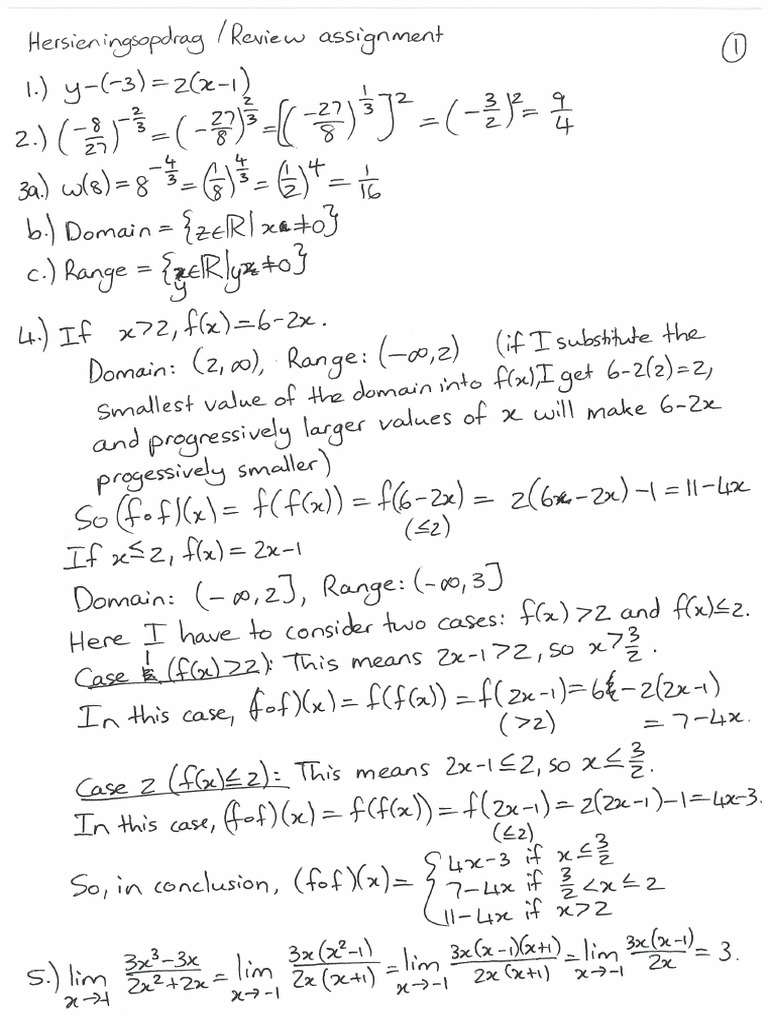 Hersieningsopdrag / Review assignment
①
1.) y-(-3) = 2(x-1)
2.) (-8/27)^(-2/3) = (-27/8)^(2/3) = [(-27/8)^(1/3)]^2 = (-3/2)^2 = 9/4
3a.) w(8) = 8^(-4/3) = (1/8)^(4/3) = (1/2)^4 = 1/16
b.) Domain = {z∈ℝ | x≠0}
c.) Range = {y∈ℝ | y≠0}
4.) If x>2, f(x) = 6-2x.
Domain: (2,∞), Range: (-∞,2) (if I substitute the
smallest value of the domain into f(x), I get 6-2(2)=2,
and progressively larger values of x will make 6-2x
progessively smaller)
So (f∘f)(x) = f(f(x)) = f(6-2x) = 2(6-2x)-1 = 11-4x
(≤2)
If x≤2, f(x) = 2x-1
Domain: (-∞,2], Range: (-∞,3]
Here I have to consider two cases: f(x)>2 and f(x)≤2.
Case 1 (f(x)>2): This means 2x-1>2, so x>3/2.
In this case, (f∘f)(x) = f(f(x)) = f(2x-1) = 6-2(2x-1)
(>2) = 7-4x.
Case 2 (f(x)≤2): This means 2x-1≤2, so x≤3/2.
In this case, (f∘f)(x) = f(f(x)) = f(2x-1) = 2(2x-1)-1 = 4x-3.
(≤2)
So, in conclusion, (f∘f)(x) = { 4x-3 if x≤3/2
7-4x if 3/2<x≤2
11-4x if x>2
5.) lim x→-1 (3x^3-3x)/(2x^2+2x) = lim x→-1 3x(x^2-1)/(2x(x+1)) = lim x→-1 3x(x-1)(x+1)/(2x(x+1)) = lim x→-1 3x(x-1)/(2x) = 3.